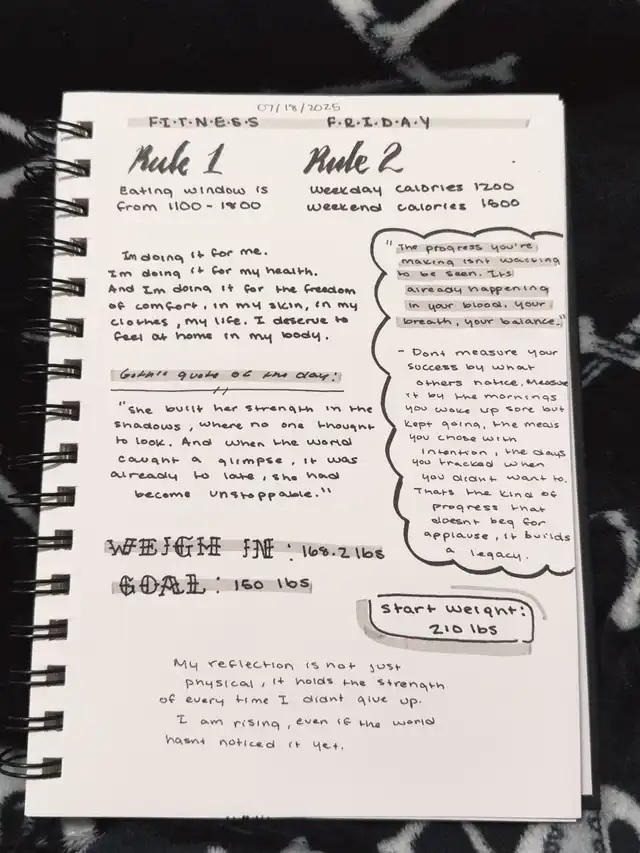 07/18/2025
F·I·T·N·E·S·S F·R·I·D·A·Y
Rule 1
Eating window is
from 1100 - 1800
Rule 2
Weekday calories 1200
Weekend calories 1500
Im doing it for me.
Im doing it for my health.
And Im doing it for the freedom
of comfort, in my skin, in my
clothes, my life. I deserve to
feel at home in my body.
Gothic quote of the day:
"She built her strength in the
shadows, where no one thought
to look. And when the world
caught a glimpse, it was
already to late, she had
become unstoppable."
"The progress you're
making isnt waiting
to be seen. Its
already happening
in your blood, your
breath, your balance."
- Dont measure your
success by what
others notice. Measure
it by the mornings
you woke up sore but
kept going, the meals
you chose with
intention, the days
you tracked when
you didnt want to.
Thats the kind of
progress that
doesnt beg for
applause, it builds
a legacy.
WEIGH IN : 168.2 lbs
GOAL : 150 lbs
Start weight:
210 lbs
My reflection is not just
physical, it holds the strength
of every time I didnt give up.
I am rising, even if the world
hasnt noticed it yet.